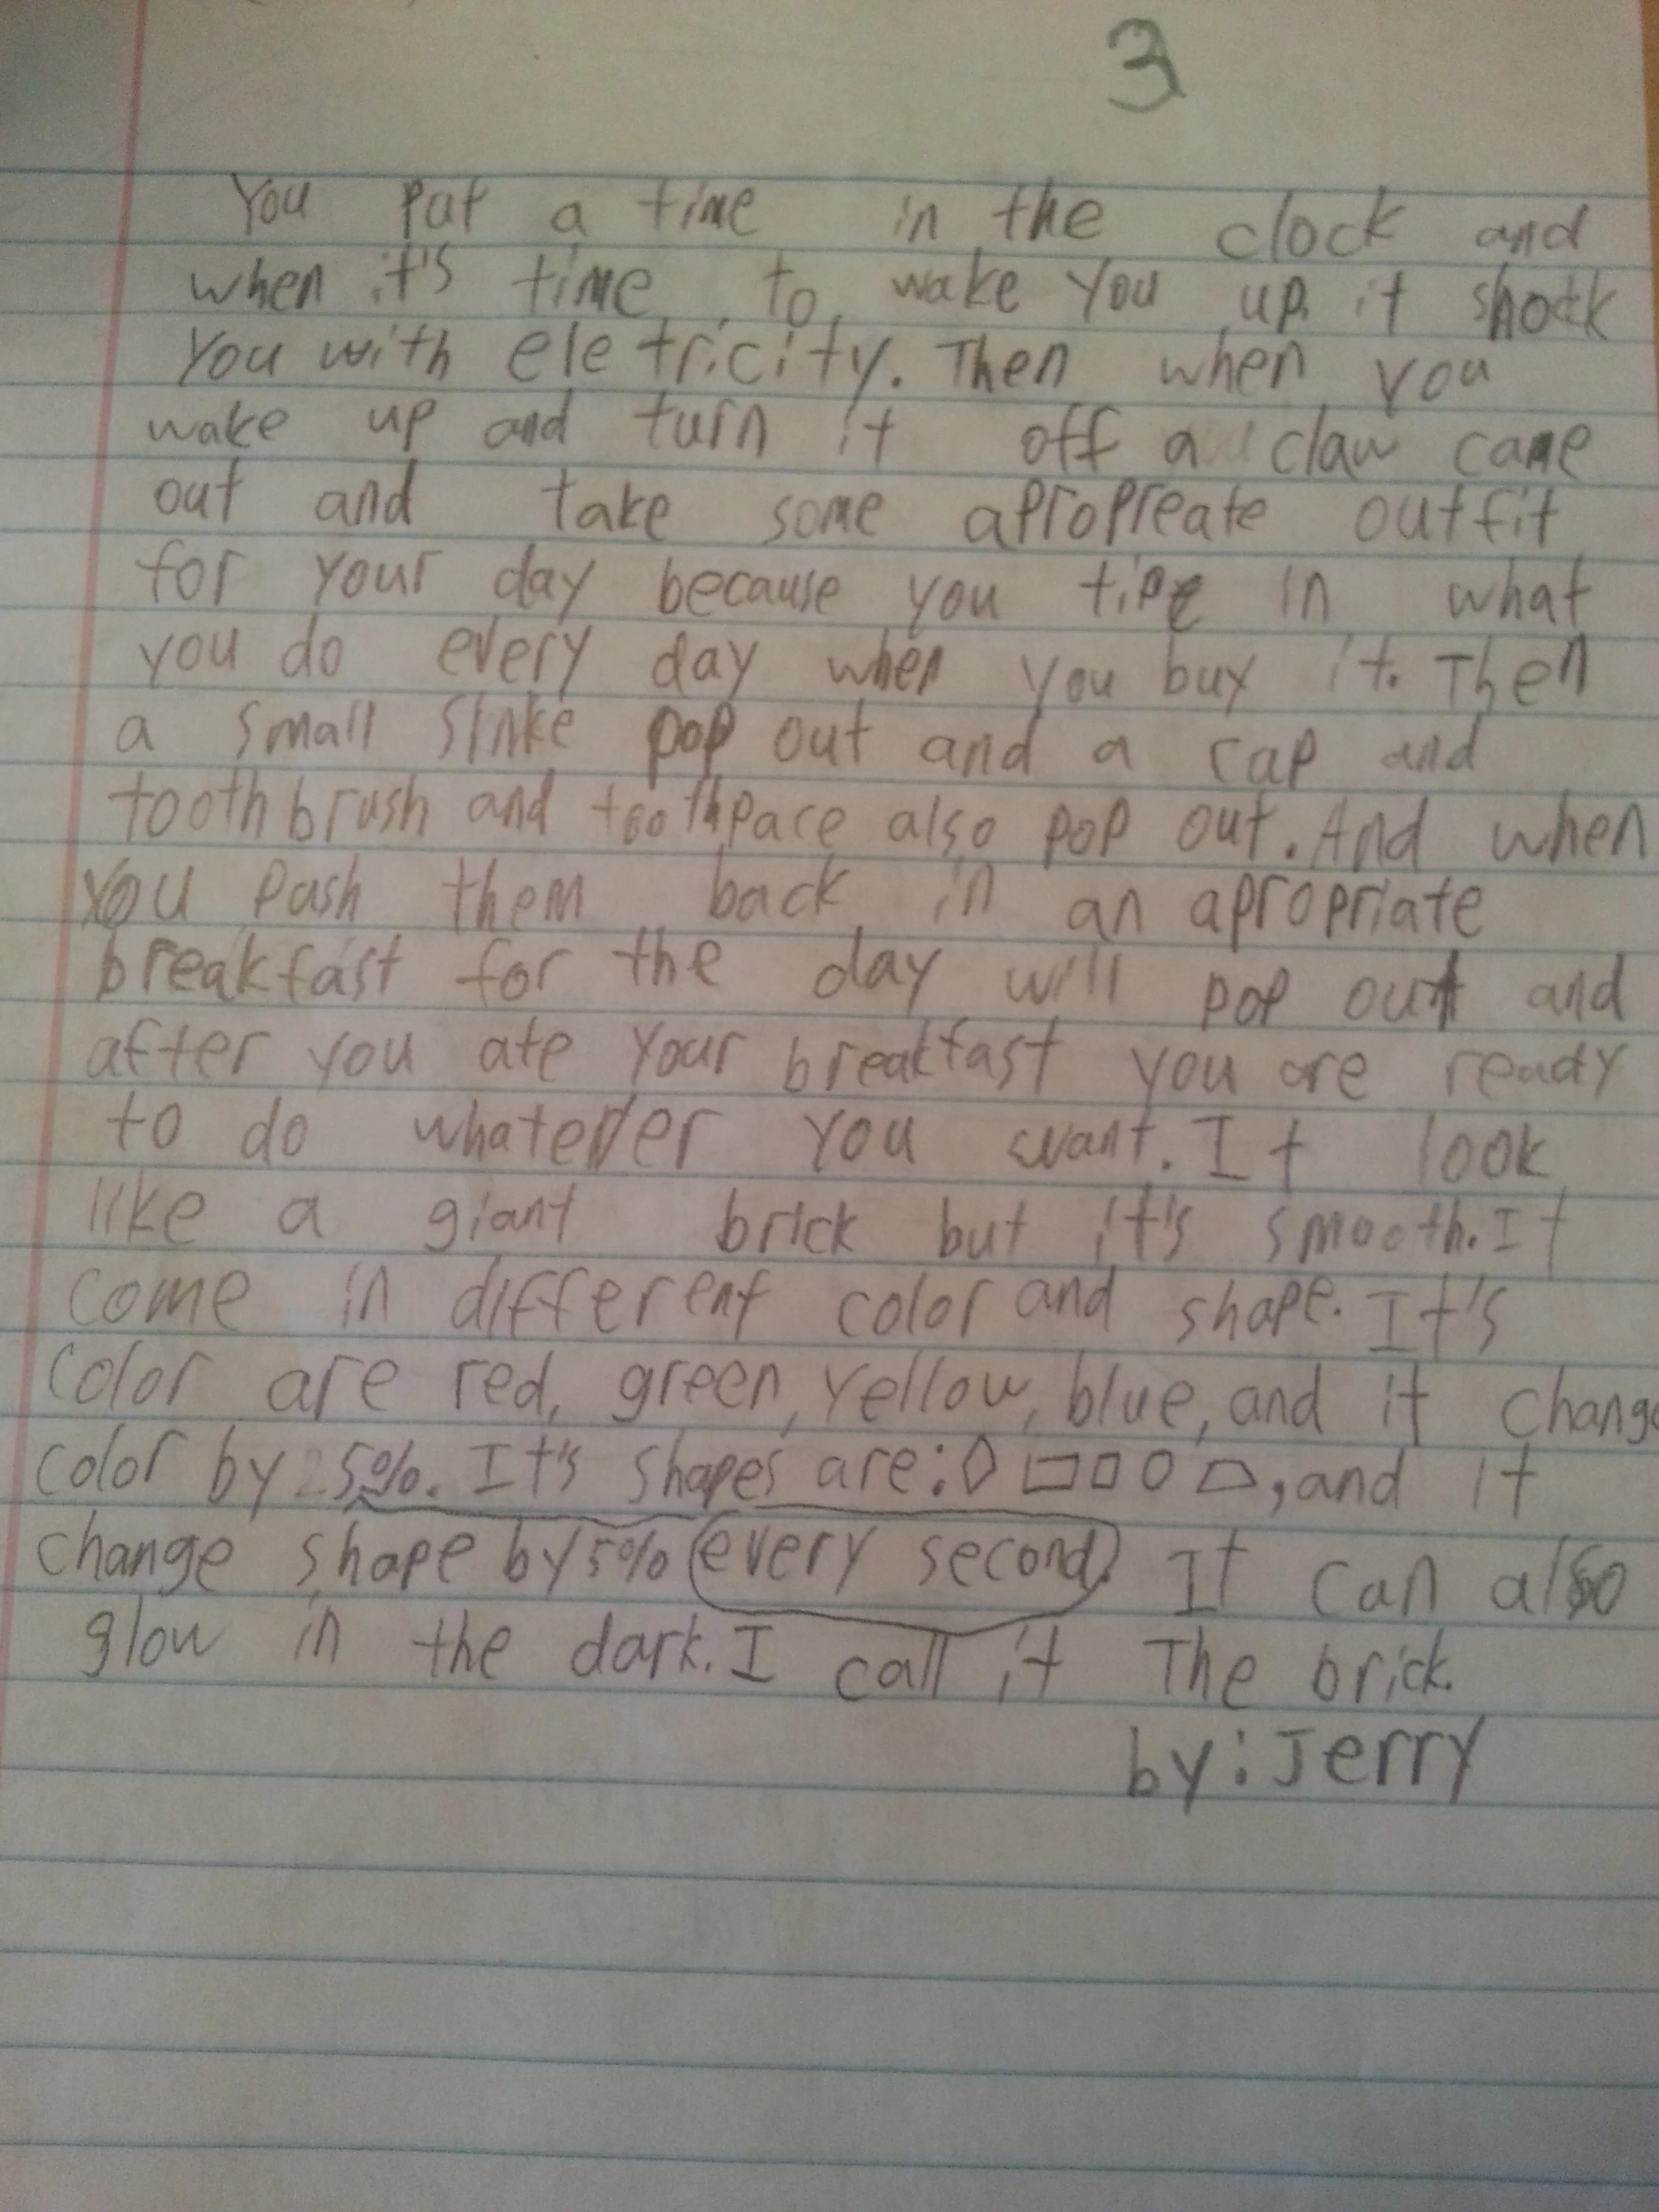 3
You put a time in the clock and
when it's time to wake you up it shock
you with eletricity. Then when you
wake up and turn it off a claw came
out and take some apropreate outfit
for your day because you tipe in what
you do every day when you buy it. Then
a small sinke pop out and a cap and
toothbrush and toothpace also pop out. And when
you push them back in an apropriate
breakfast for the day will pop out and
after you ate your breakfast you are ready
to do whatever you want. It look
like a giant brick but it's smooth. It
come in different color and shape. It's
color are red, green, yellow, blue, and it change
color by 5%. It's shapes are: , and it
change shape by 5% every second. It can also
glow in the dark. I call it The brick.
by: Jerry